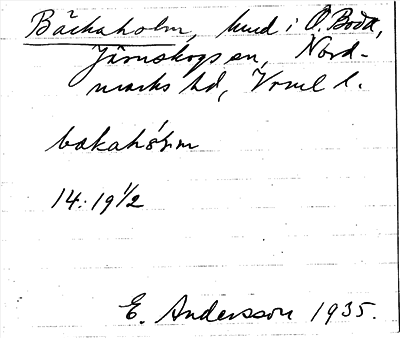 Bäckaholm, hmd i Ö. Boda,
Järnskogs sn, Nord-
marks hd, Vrml l.
bakahòḷm
14:19 1/2
E. Andersson 1935.